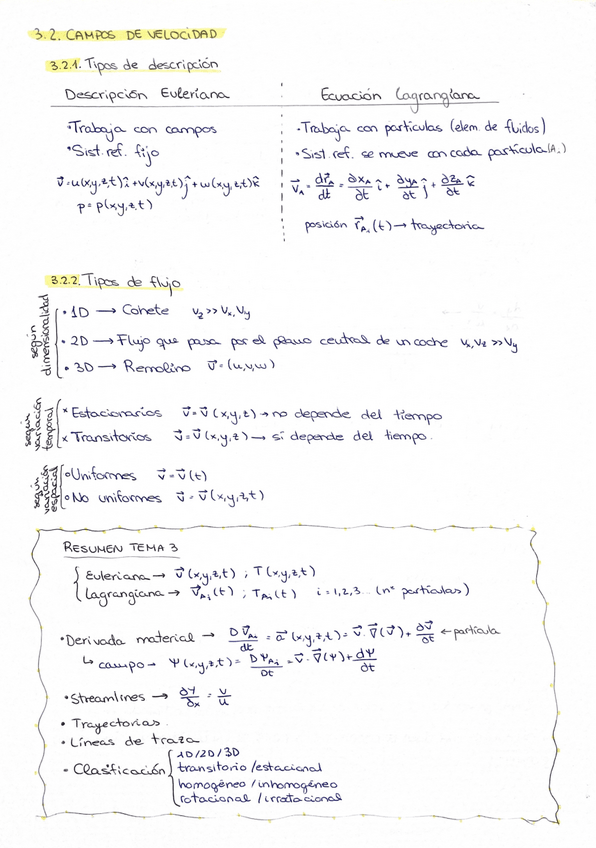 3.2. CAMPOS DE VELOCIDAD
3.2.1. Tipos de descripción
Descripción Euleriana
Ecuación Lagrangiana
· Trabaja con campos
· Sist. ref. fijo
v⃗ = u(x,y,z,t)î + v(x,y,z,t)ĵ + w(x,y,z,t)k̂
p = p(x,y,z,t)
· Trabaja con partículas (elem. de fluidos)
· Sist. ref. se mueve con cada partícula (A.)
v⃗_A = dr⃗_A/dt = ∂x_A/∂t î + ∂y_A/∂t ĵ + ∂z_A/∂t k̂
posición r⃗_Ai(t) → trayectoria
3.2.2. Tipos de flujo
según dimensionalidad
· 1D → Cohete v_z >> v_x, v_y
· 2D → Flujo que pasa por el plano central de un coche v_x, v_z >> v_y
· 3D → Remolino v⃗ = (u,v,w)
según variación temporal
x Estacionarios v⃗ = v⃗(x,y,z) → no depende del tiempo
x Transitorios v⃗ = v⃗(x,y,z) → sí depende del tiempo.
según variación espacial
o Uniformes v⃗ = v⃗(t)
o No uniformes v⃗ = v⃗(x,y,z,t)
RESUMEN TEMA 3
Euleriana → v⃗(x,y,z,t) ; T(x,y,z,t)
Lagrangiana → v⃗_Ai(t) ; T_Ai(t) i = 1,2,3... (nº partículas)
· Derivada material → Dv⃗_Ai/dt = a⃗(x,y,z,t) = v⃗·∇⃗(v⃗) + ∂v⃗/∂t ← partícula
↳ campo → Ψ(x,y,z,t) = DΨ_Ai/Dt = v⃗·∇⃗(Ψ) + dΨ/dt
· Streamlines → ∂y/∂x = v/u
· Trayectorias.
· Líneas de traza
- Clasificación
1D/2D/3D
transitorio/estacional
homogéneo/inhomogéneo
rotacional/irrotacional